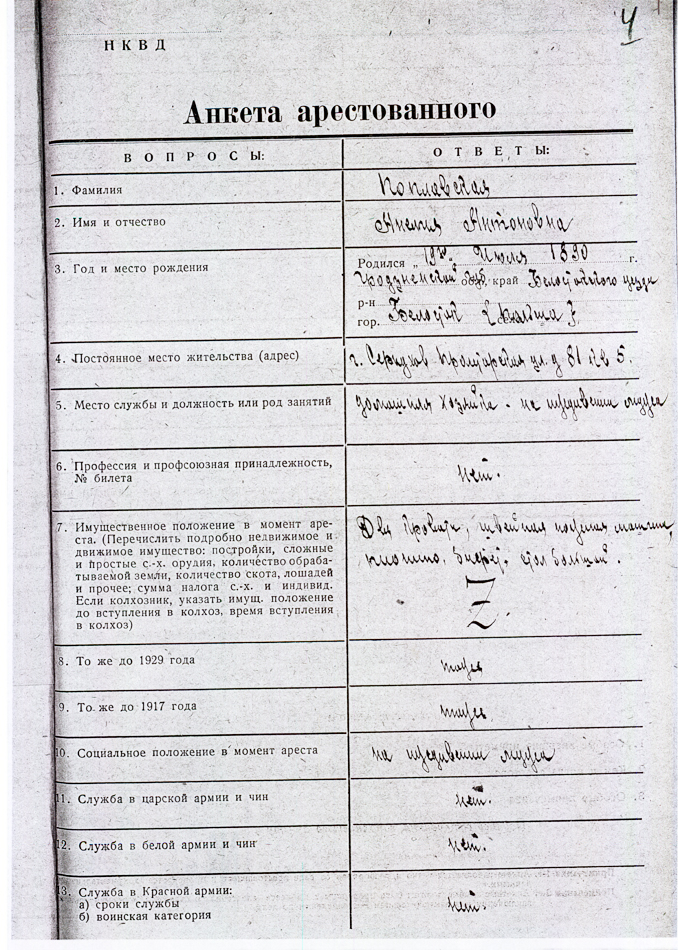 4
НКВД
Анкета арестованного
ВОПРОСЫ:
ОТВЕТЫ:
1. Фамилия
Поплавская
2. Имя и отчество
Антоновна
3. Год и место рождения
Родился „19го„ Июля 1890 г.
Гродненской губ. край Белостокского уезда
р-н
гор. Белосток [Польша].
4. Постоянное место жительства (адрес)
г. Серпухов Пролетарская ул. д 81 кв 5.
5. Место службы и должность или род занятий
домашняя хозяйка - на иждивении мужа
6. Профессия и профсоюзная принадлежность,
№ билета
нет.
7. Имущественное положение в момент аре-
ста. (Перечислить подробно недвижимое и
движимое имущество: постройки, сложные
и простые с.-х. орудия, количество обраба-
тываемой земли, количество скота, лошадей
и прочее; сумма налога с.-х. и индивид.
Если колхозник, указать имущ. положение
до вступления в колхоз, время вступления
в колхоз)
Две кровати, швейная ножная машина,
пианино, буфет, стол большой.
Z
8. То же до 1929 года
тоже
9. То же до 1917 года
тоже
10. Социальное положение в момент ареста
на иждивении мужа
11. Служба в царской армии и чин
нет.
12. Служба в белой армии и чин
нет.
13. Служба в Красной армии:
а) сроки службы
б) воинская категория
нет.